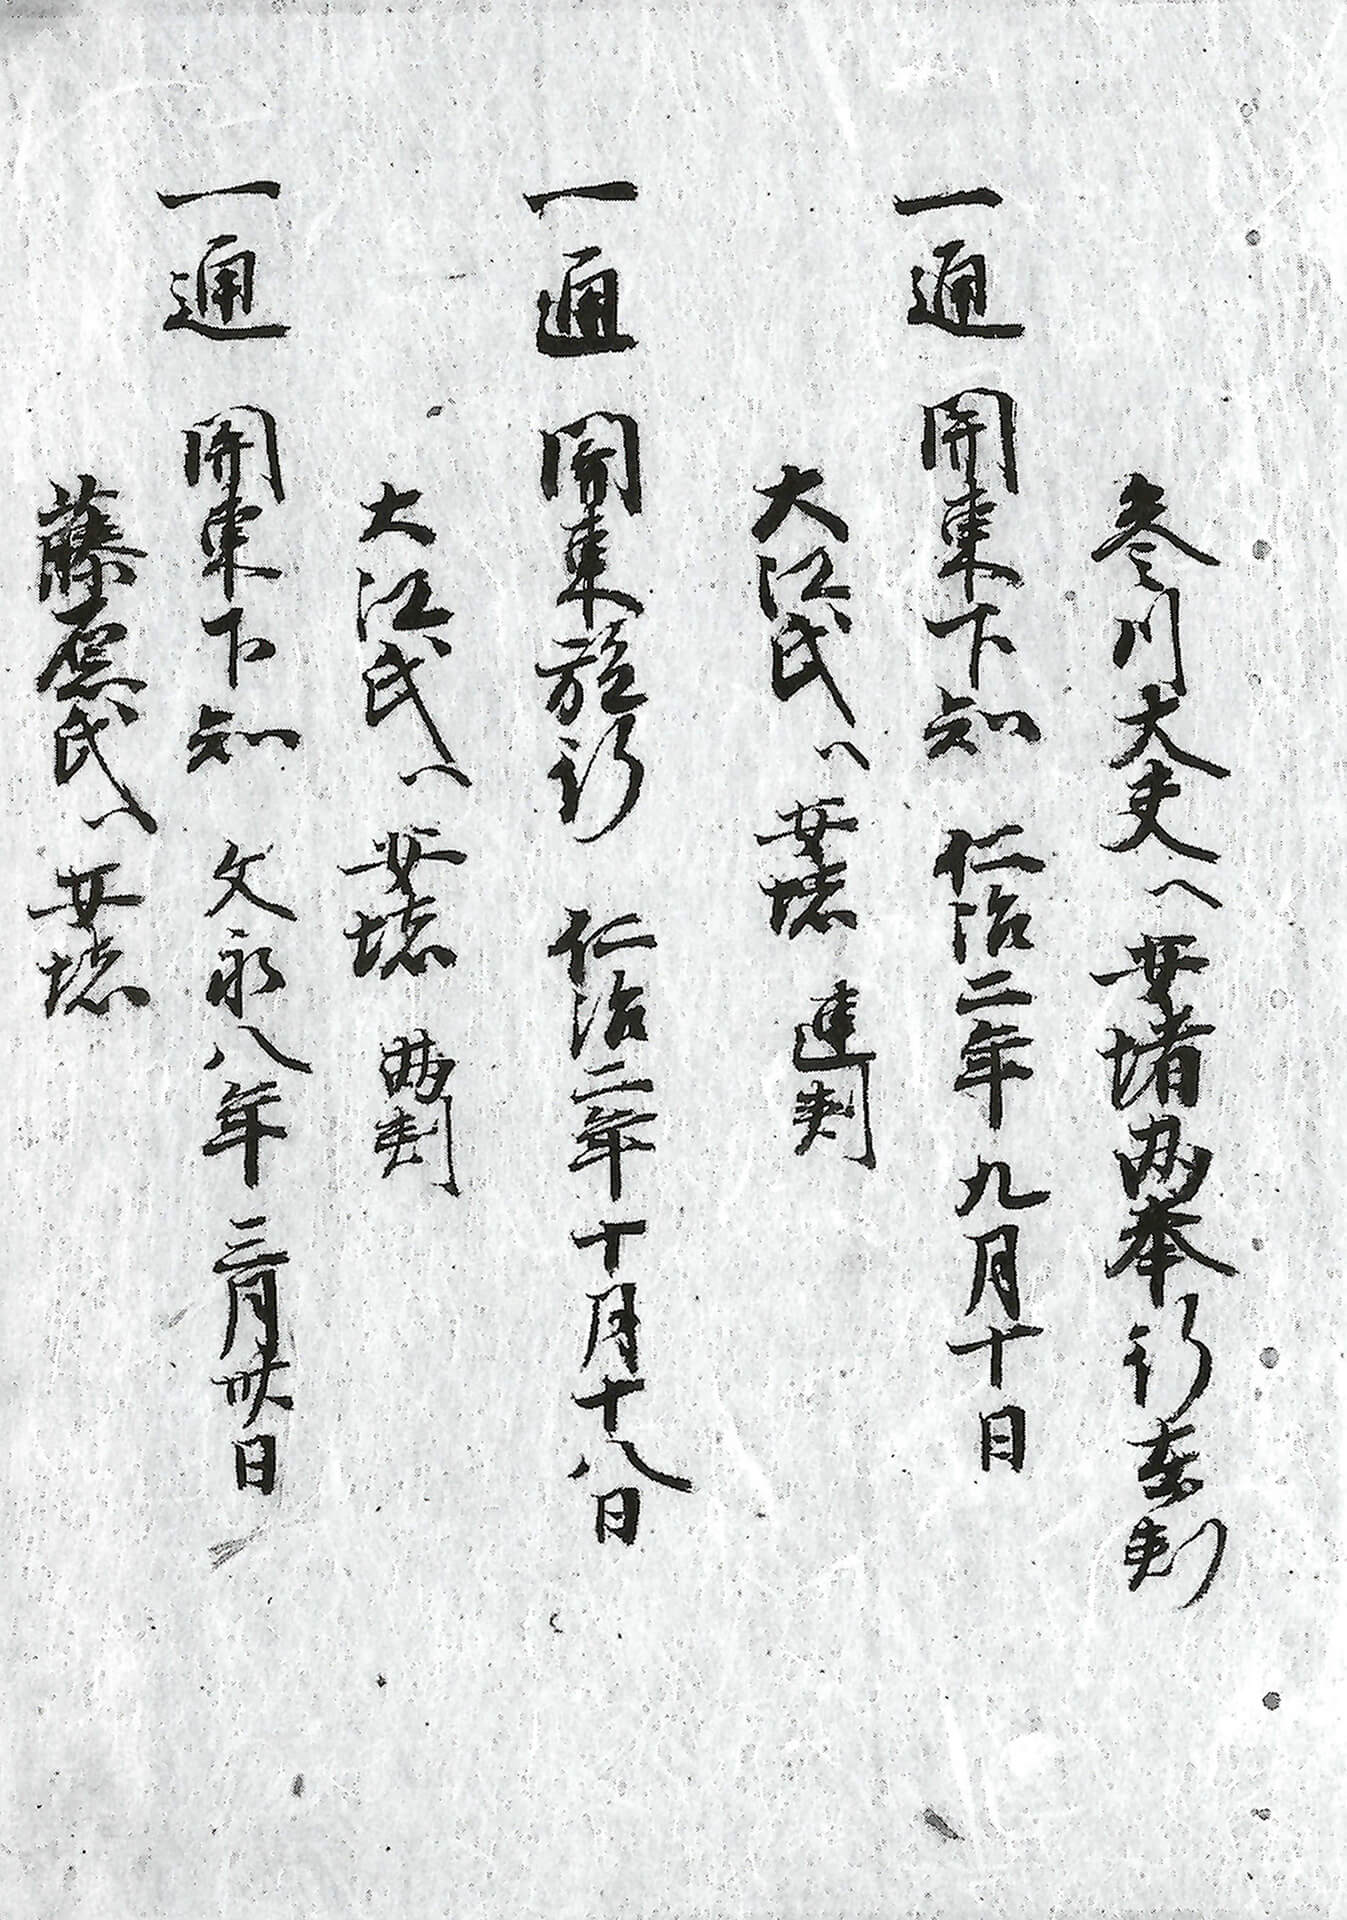 参川大夫へ安堵両奉行在判
一通 関東下知 仁治二年九月十日
大江氏へ安堵 連判
一通 関東施行 仁治二年十月十八日
大江氏へ安堵 両判
一通 関東下知 文永八年三月廿八日
藤原氏へ安堵